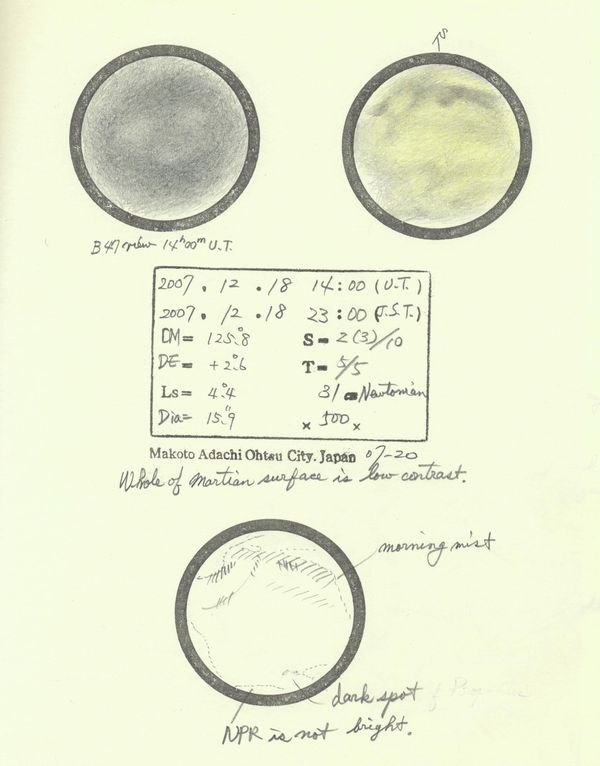 S
B47 view 14h00m U.T.
2007. 12 .18 14:00 (U.T.)
2007. 12 .18 23:00 (J.S.T.)
CM= 125.°8 S= 2(3)/10
DE= +2.°6 T= 5/5
Ls= 4.°4 31 cm Newtonian
Dia= 15."9 × 500 ×
Makoto Adachi Ohtsu City. Japan 07-20
Whole of Martian surface is low contrast.
morning mist
dark spot
NPR is not bright.